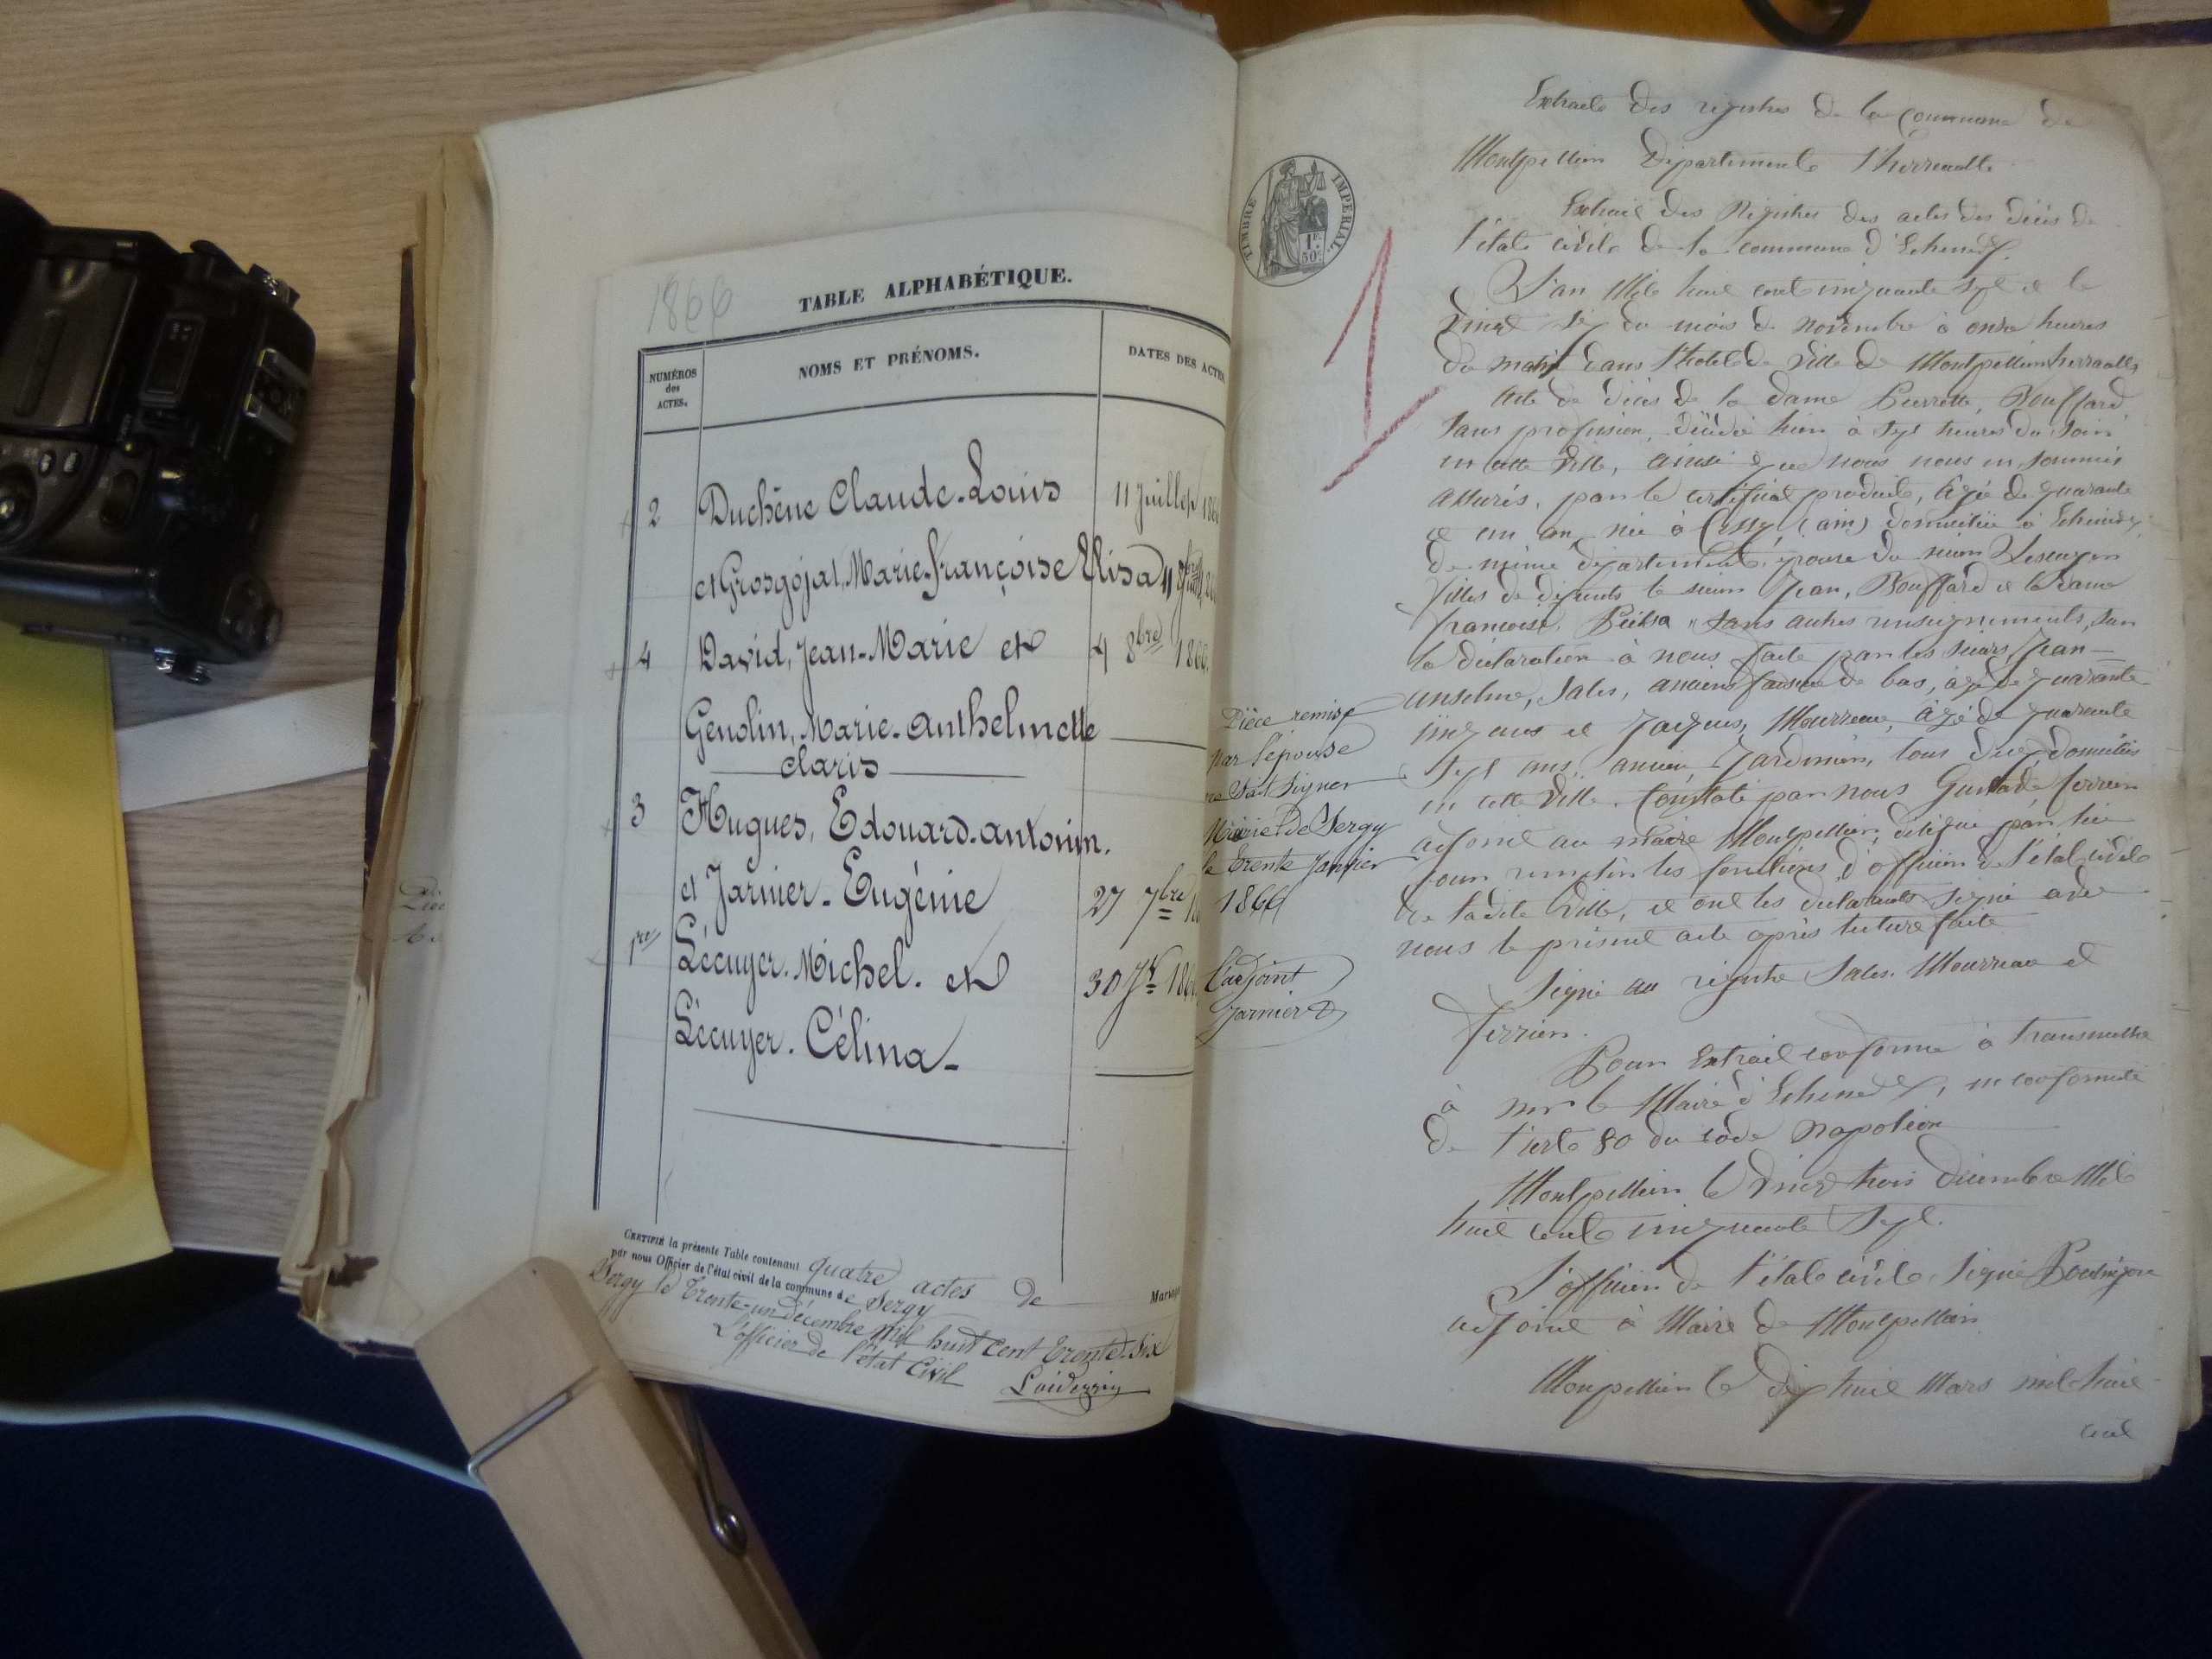 1866
TABLE ALPHABÉTIQUE.
NUMÉROS
des
ACTES.
NOMS ET PRÉNOMS.
DATES DES ACTES
2 Duchêne Claude-Louis 11 Juillet
et Grosgojat, Marie-françoise Elisa
4 David, Jean-Marie et 4 8bre 1866
Genolin, Marie-anthelmette
claris
3 Hugues, Edouard-antonin.
et Jarnier-Eugénie 27 7bre
1er Lécuyer. Michel. et 30 Jer
Lécuyer. Célina-
CERTIFIÉ la présente Table contenant quatre actes de Mariage
par nous Officier de l'état civil de la commune de Sergy
Sergy le Trente-un Décembre mil huit cent trente-six
L'officier de l'état Civil
Pièce remise
par l'épouse
Mairie de Sergy
le trente janvier
1866
L'adjoint
Jarnier
TIMBRE IMPÉRIAL
1F.
50c.
Extraits des registres de la commune de
Montpellier Département l'herreault
Extrait des Registres des actes des décès de
l'état civile de la commune d'Echenevex.
L'an Mile huit cent cinquante sept et le
vingt six du mois de novembre à onze heures
du matin dans l'hotel de Ville de Montpellier herraults
acte de décès de la dame Pierrette, Bouffard
sans profession, décédée hier à sept heures du soir
en cette Ville, ainsi que nous nous en sommes
assurés, par le certificat produit, âgée de quarante
et un an, née à Cessy, (ain) domiciliée à Echenevex
de même département, épouse du sieur Lescuyer
filles de défunts le sieur Jean, Bouffard et la dame
francoise, sans autres renseignements, sur
la déclaration à nous faite par les sieurs, Jean-
anselme, Sales, anciens faiseur de bas, âgé de quarante-
cinq ans et Jacques, Mourreau, âgé de quarante
sept ans, ancien, Jardinier, tous deux domiciliés
en cette Ville. Constaté par nous Gustave ferrier
adjoint au maire Montpellier, délégué par lui
pour remplir les fonctions d'officier de l'état civile
de ladite Ville, et ont les déclarants signé avec
nous le présent acte après lecture faite
Signé au registre Sales. Mourreau et
ferrier.
Pour Extrait conforme à transmettre
à mr le Maire d'Echenevex, en conformité
de l'arte 80 du code napoléon
Montpellier le vingt trois décembre Mile
huit cents cinquante sept.
L'officier de l'état civile, signé
adjoint à Maire de Montpellier
Monpellier le dix huit Mars mil huit
cent